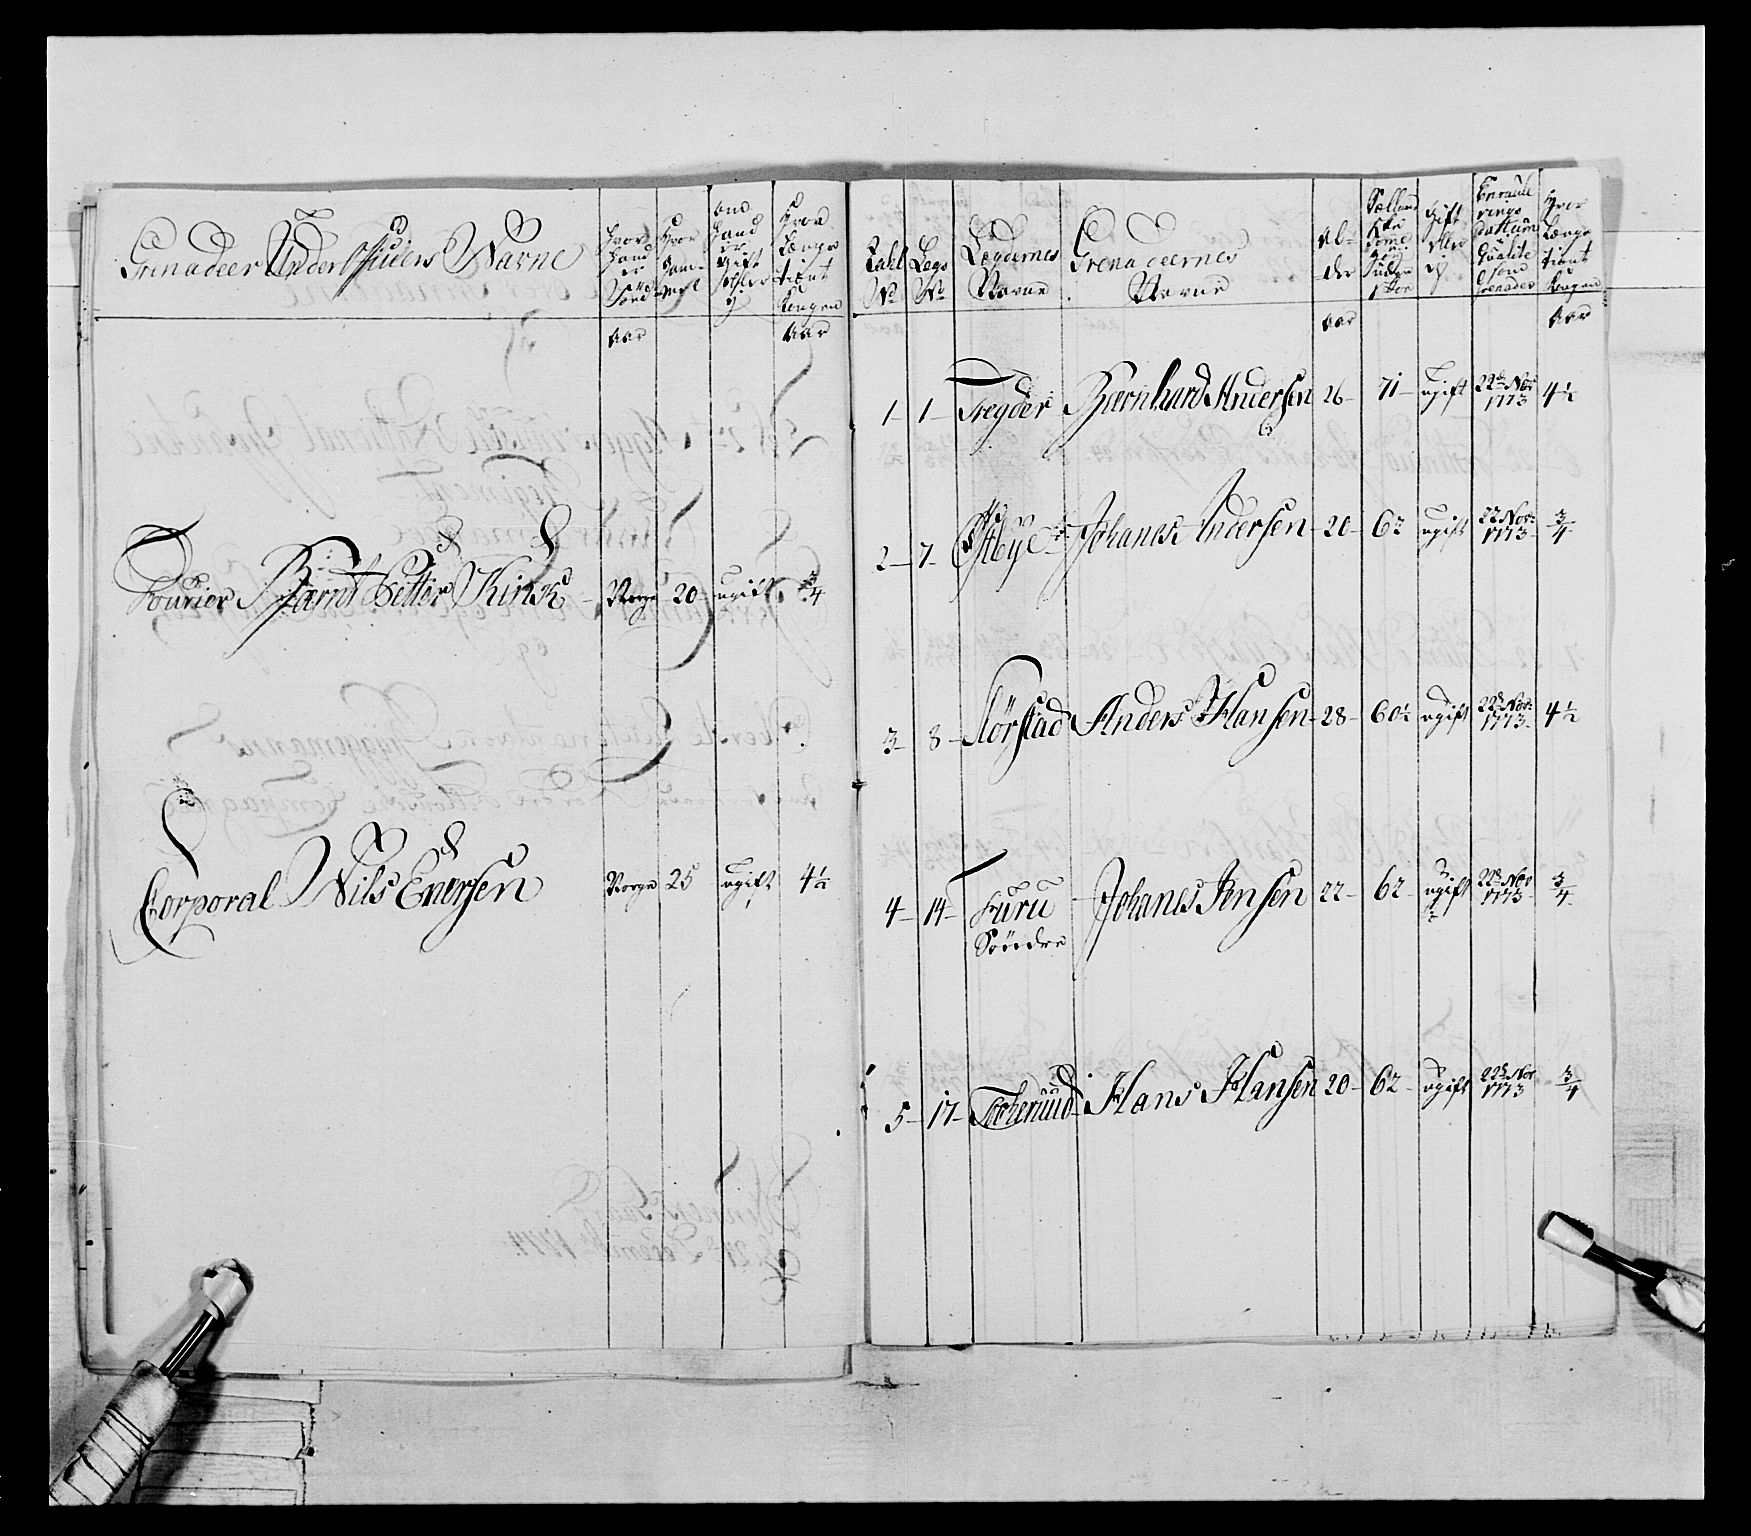 Grenadeer Under Officiers Navne
Hvor
Hand
er
Föd
aar
Hvor
Gam-
mel
om
Hand
er
Gift
eller
ey
Hvor
Længe
tient
Kongen
aar
Fourier Bærnt Petter Kinck Norge 20 ugift 3/4
Corporal Nils Enersen Norge 25 ugift 4½
Tahl
No
Legs
No
Lægdernes
Navne
Grenadeernes
Navne
Al-
der
aar
Gift
eller
ey
Dattum
Qualite
som
Grenadeer
Hvor
Længe
tient
Kongen
aar
1 1 Tregder Bernhard Andersen 26 71 ugift 22de Nov 1773 4½
2 7 Østbye Johanes Andersen 20 62 ugift 22 Nov: 1773 3/4
3 8 Körstad Anders Hansen 28 60½ ugift 22de Nov: 1773 4½
4 14 Furu Söndre Johanes Jensen 22 62 ugift 22de Nov 1773 3/4
5 17 Tocherud Hans Hansen 20 62 ugift 22de Nov 1773 3/4